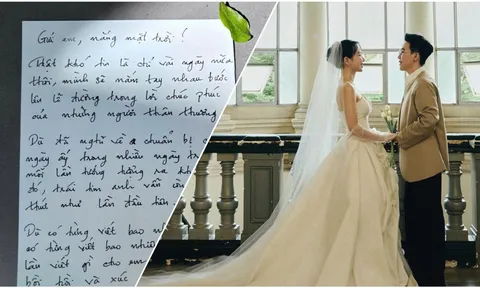 Gửi em, nắng mặt trời!
Thật khó tin là chỉ vài ngày nữa
thôi, mình sẽ nắm tay nhau bước
lên lễ đường trong lời chúc phúc
của những người thân thương
Dù đã nghĩ về & chuẩn bị c
ngày ấy trong nhiều ngày tr
mỗi lần tưởng tượng ra kh
đó, trái tim anh vẫn cồn
thức như lần đầu tiên
Dù có từng viết bao n
có từng viết bao nhiê
lần viết gì cho em
bồi hồi và xúc